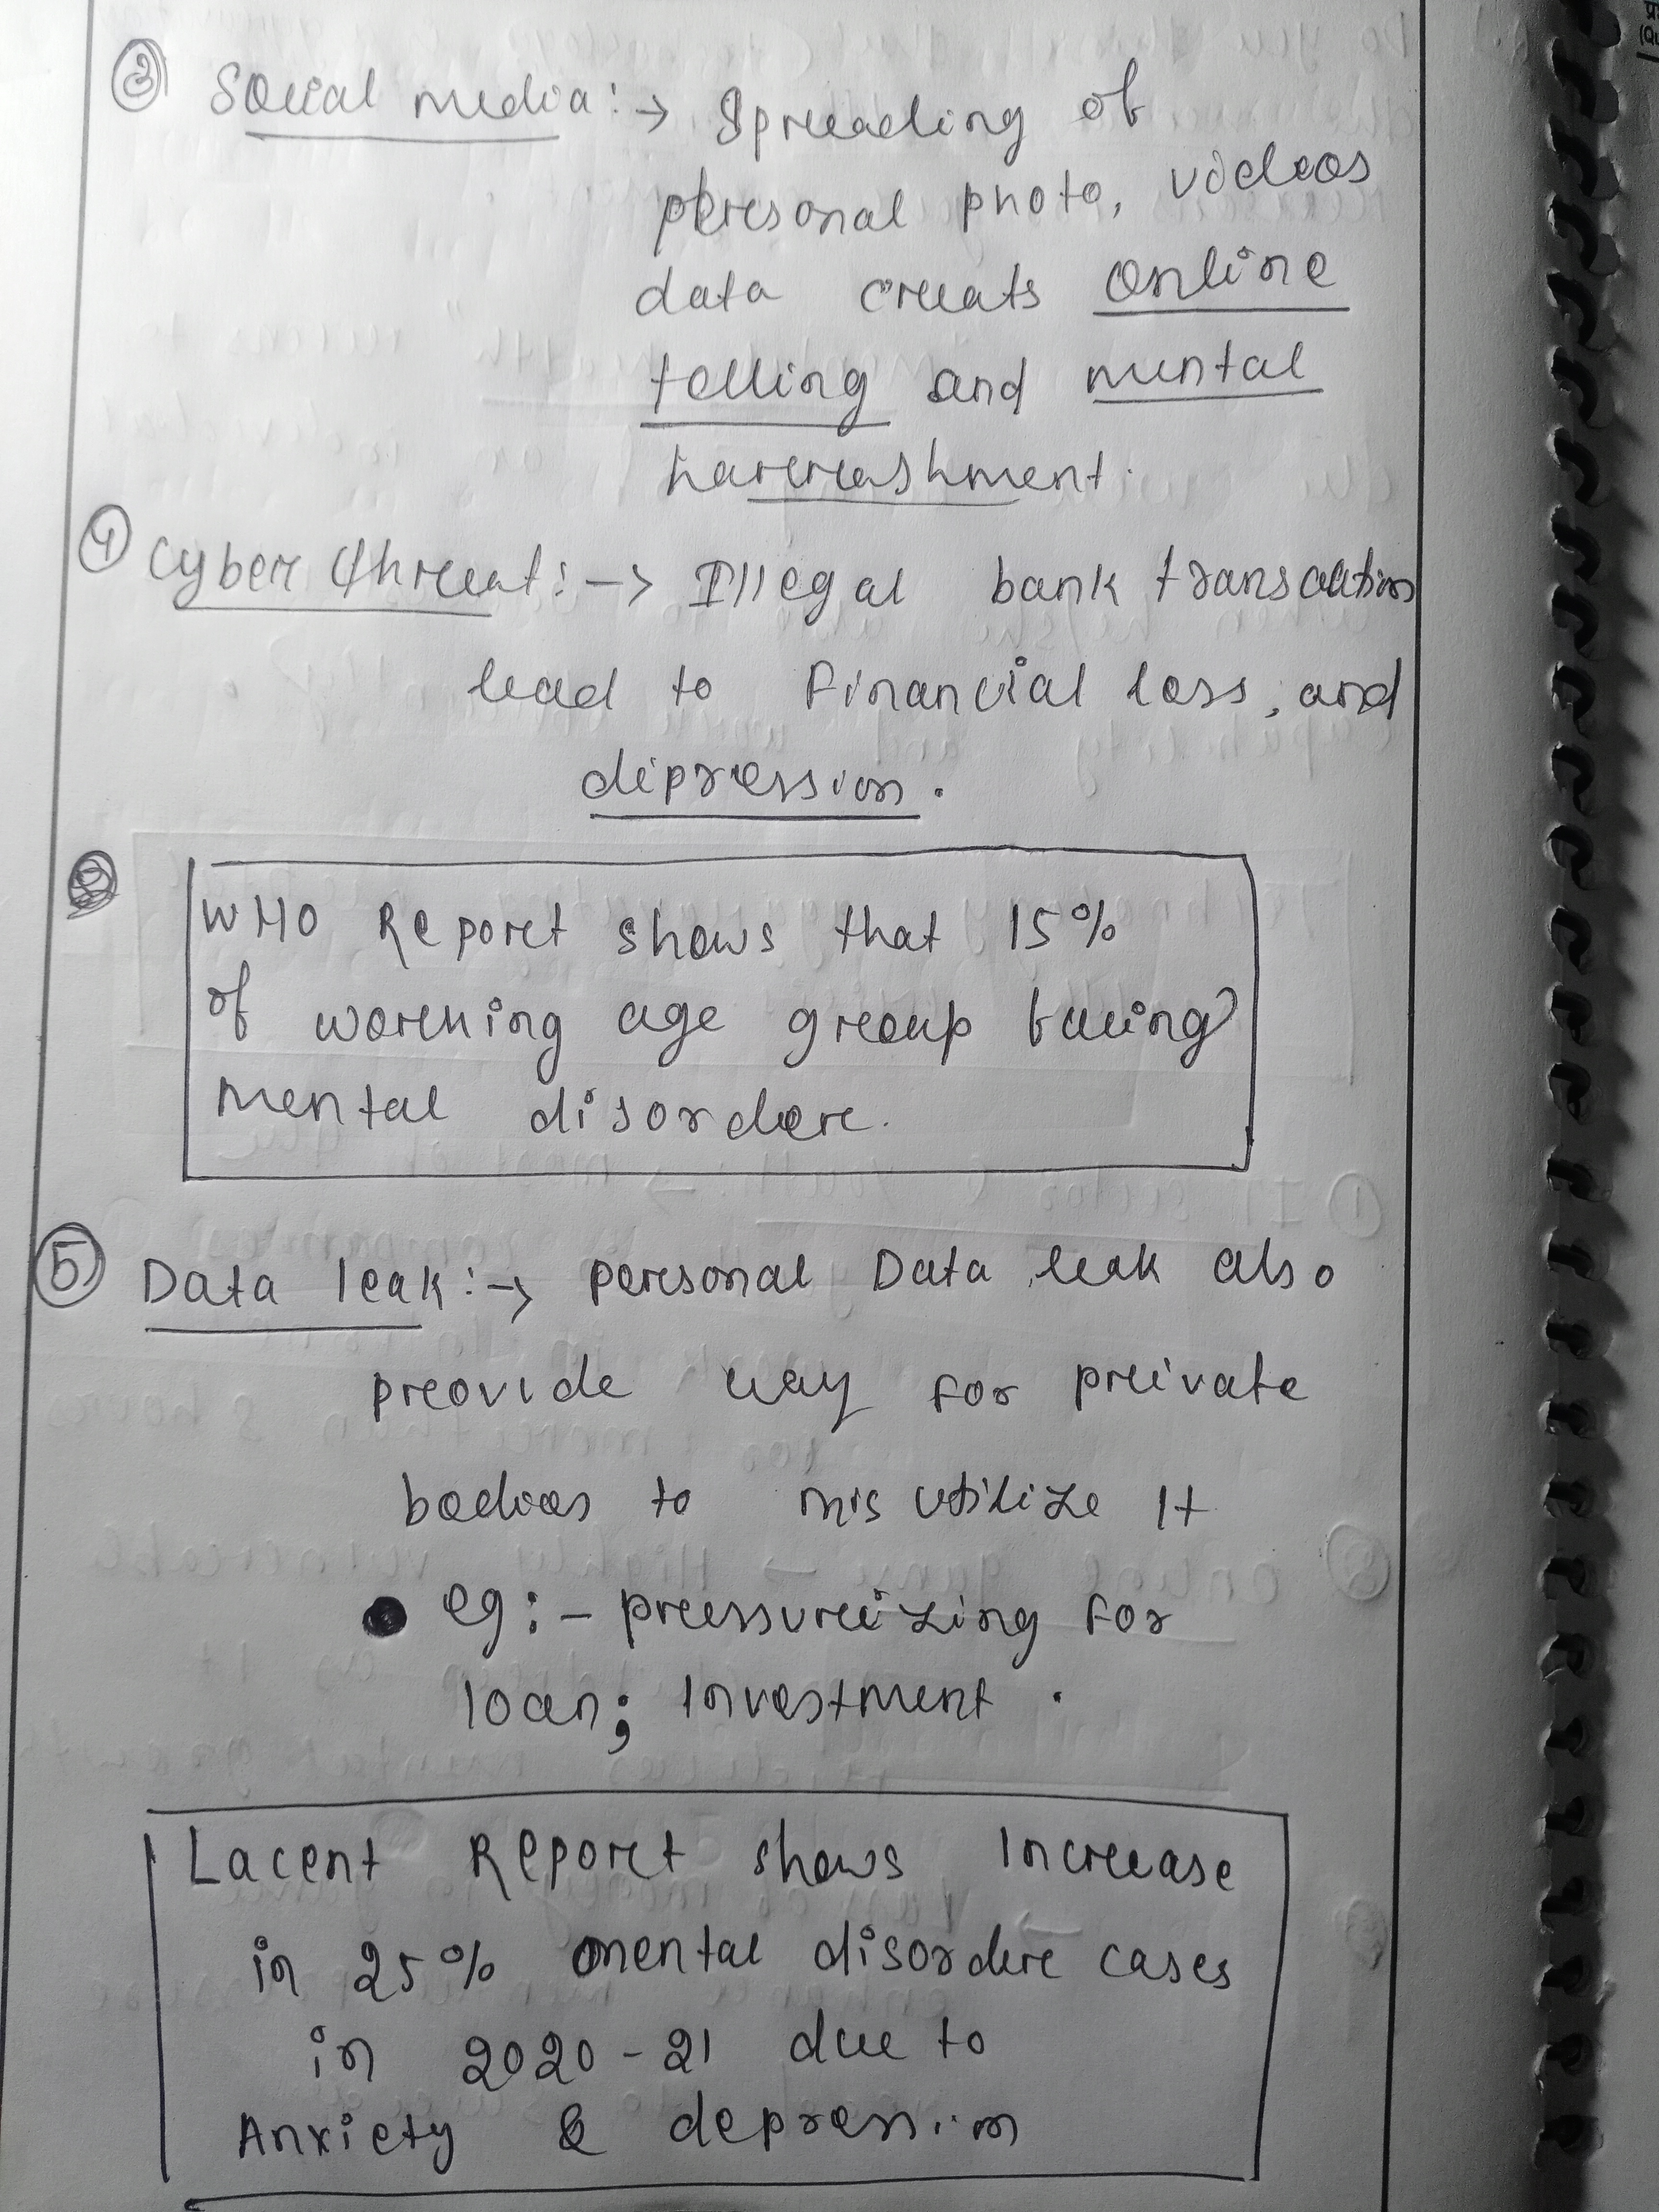 ③ Social media :→ Spreading of
personal photo, videos
data creats online
tolling and mental
harrashment.
④ Cyber threat :→ Illegal bank transaction
lead to Financial loss, and
dipression.
WHO Report shows that 15%
of working age group facing
mental disorder.
⑤ Data leak :→ personal Data leak also
provide way for private
bodies to mis utilize It
eg :- pressurizing for
loan; Investment .
Lacent Report shows Increase
in 25% mental disorder cases
in 2020-21 due to
Anxiety & depression